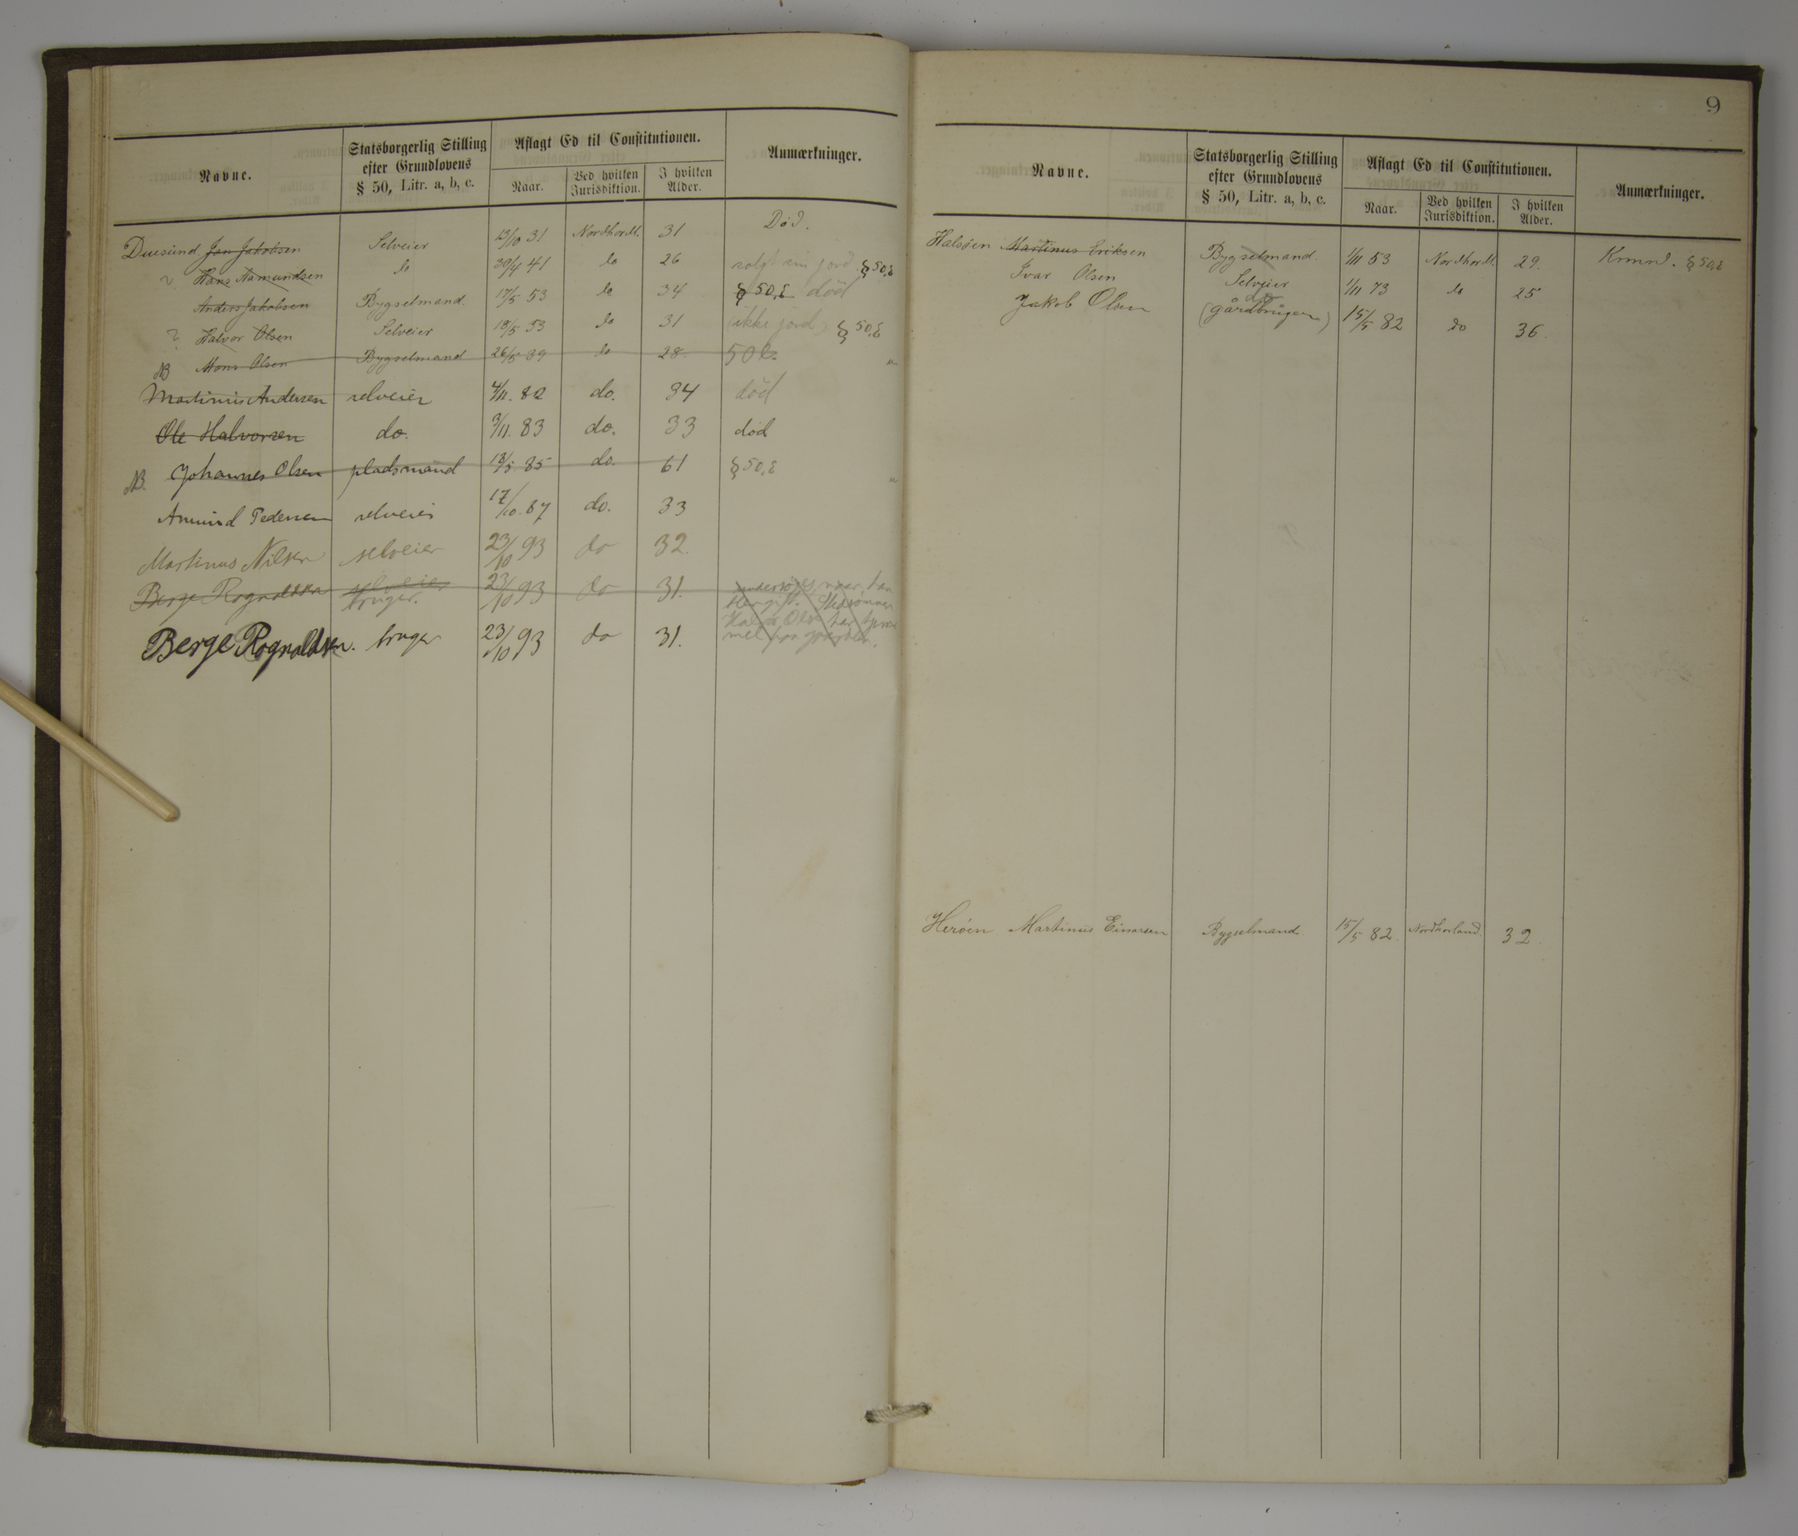 Navne.
Statsborgerlig Stilling
efter Grundlovens
§ 50, Litr. a, b, c.
Aflagt Ed til Constitutionen.
Naar.
Ved hvilken
Jurisdiktion.
I hvilken
Alder.
Anmærkninger.
Duesund Jan Jakobsen Selveier 19/10 31 Nordhordl. 31 Død.
? Hans Aamundsen do 30/4 41 do 26 solgt sin jord § 50,
Anders Jakobsen Bygselmand 17/5 53 do 34 § 50, død
? Halvor Olsen Selveier 19/5 53 do 31 (ikke jord) § 50,
NB Mons Olsen Bygselmand 26/5 39 do 28 50
Martinus Andersen selveier 4/11. 82 do. 34 död
Ole Halvorsen do. 3/11. 83 do. 33 död
NB. Johannes Olsen pladsmand 18/5 85 do. 61 § 50,
Anmund Pedersen selveier 17/10. 87 do. 33
Martinus Nilsen selveier 23/10 93 do 32.
Berge Rognaldsen selveier bruger. 23/10 93 do 31.
Berge Rognaldsen. bruger 23/10 93 do 31.
9
Navne.
Statsborgerlig Stilling
efter Grundlovens
§ 50, Litr. a, b, c.
Aflagt Ed til Constitutionen.
Naar.
Ved hvilken
Jurisdiktion.
I hvilken
Alder.
Anmærkninger.
Halsøen Martinus Eriksen Bygselmand. 1/11 53 Nordhordl. 29. § 50,
Ivar Olsen Selveier 1/11 73 do 25
Jakob Olsen (gårdbruger) 15/5 82 do 36.
Herøen Martinus Einarsen Bygselmand 15/5 82. Nordhorland. 32.